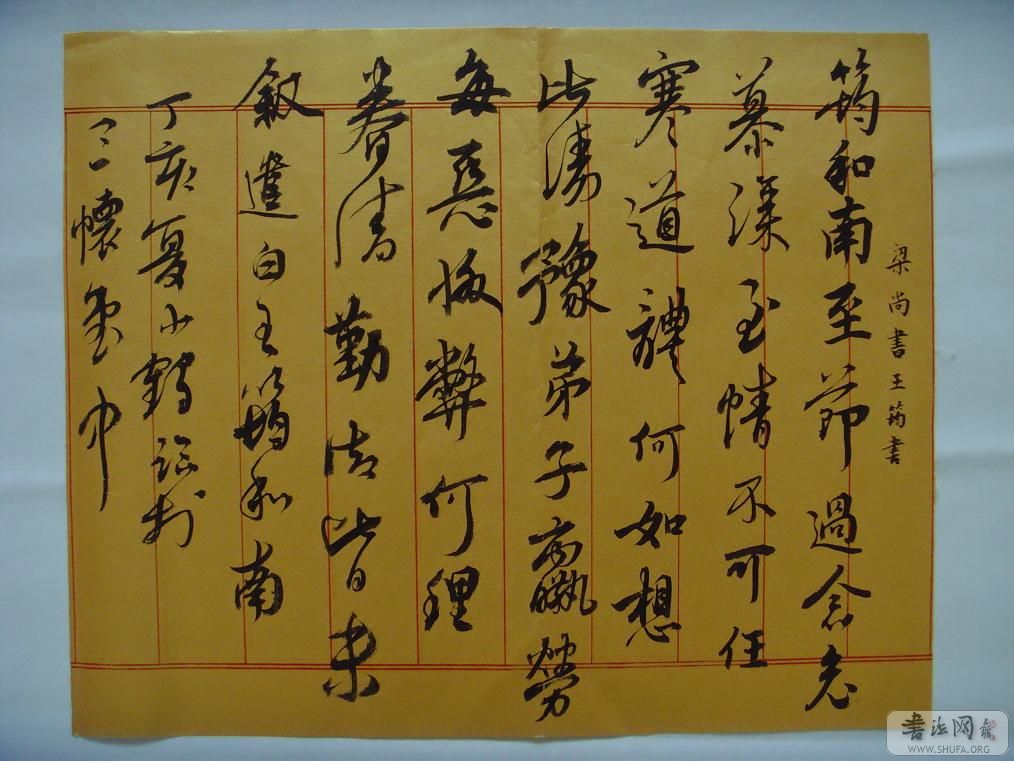 梁尚書王筠書
筠和南至節過念
慕深至情不可任
寒道體何如想
比清豫弟子羸勞
每惡悔弊何理
眷清勤皆未
敘遣白王筠和南
丁亥夏小鶴臨於
三懷堂中
書法网
WWW.SHUFA.ORG